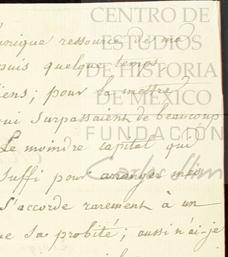 CENTRO DE
ESTUDIOS
DE HISTORIA
DE MÉXICO
FUNDACIÓN
Carlos Slim
unique ressource de me
puis quelque temps,
iens; pour la mettre
ui surpassaient de beaucoup
Le moindre capital qui
suffi pour arranger mes
S'accorde rarement à un
ue sa probité; aussi n'ai-je